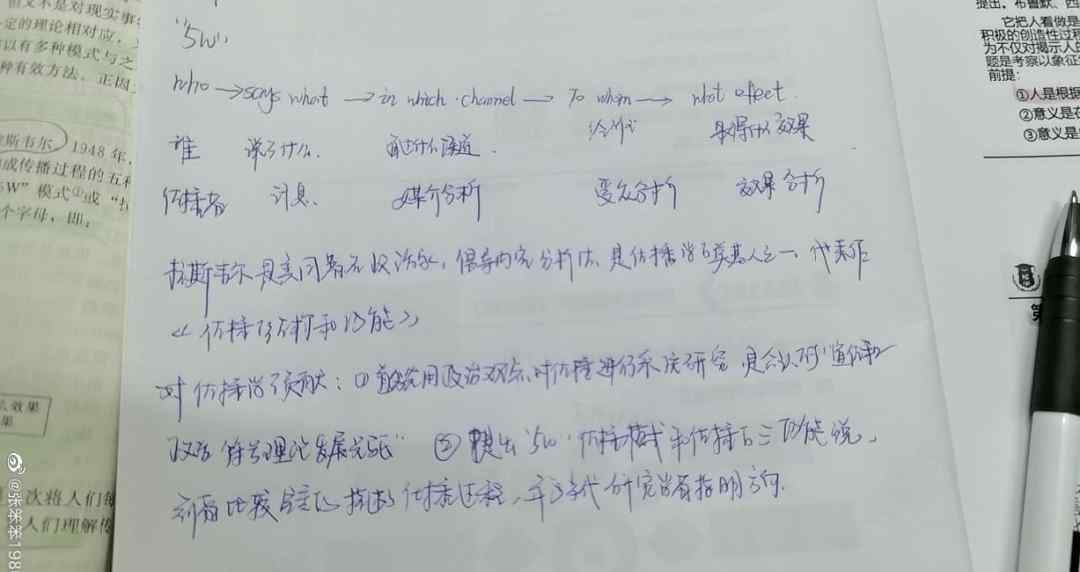 "5W"
who → says what → in which channel → to whom → what effect.
谁 说了什么. 通过什么渠道. 给谁 取得什么效果
传播者 讯息. 媒介分析 受众分析 效果分析
拉斯韦尔是美国著名政治家, 倡导内容分析法, 是传播学奠基人之一, 代表作
对传播学贡献: ① 政治观点对传播进行系统研究, 是公认的"宣传和
政治符号理论发展 " ② 提出"5W"传播模式和传播的三功能说,
比较 描述了传播过程, 研究 指明方向.
但又不是对现实事
定的理论相对应,
以有多种模式与之
种有效方法. 正因
斯韦尔 1948 年,
成传播过程的五种
5W"模式①或
个字母, 即:
效果
果
次将人们
人们理解传
提出, 布鲁默、西
它把人看做是
积极的创造性过程
为不仅对揭示人的
题是考察以象征
前提:
①人是根据
②意义是在
③意义是
第
@张笨笨198